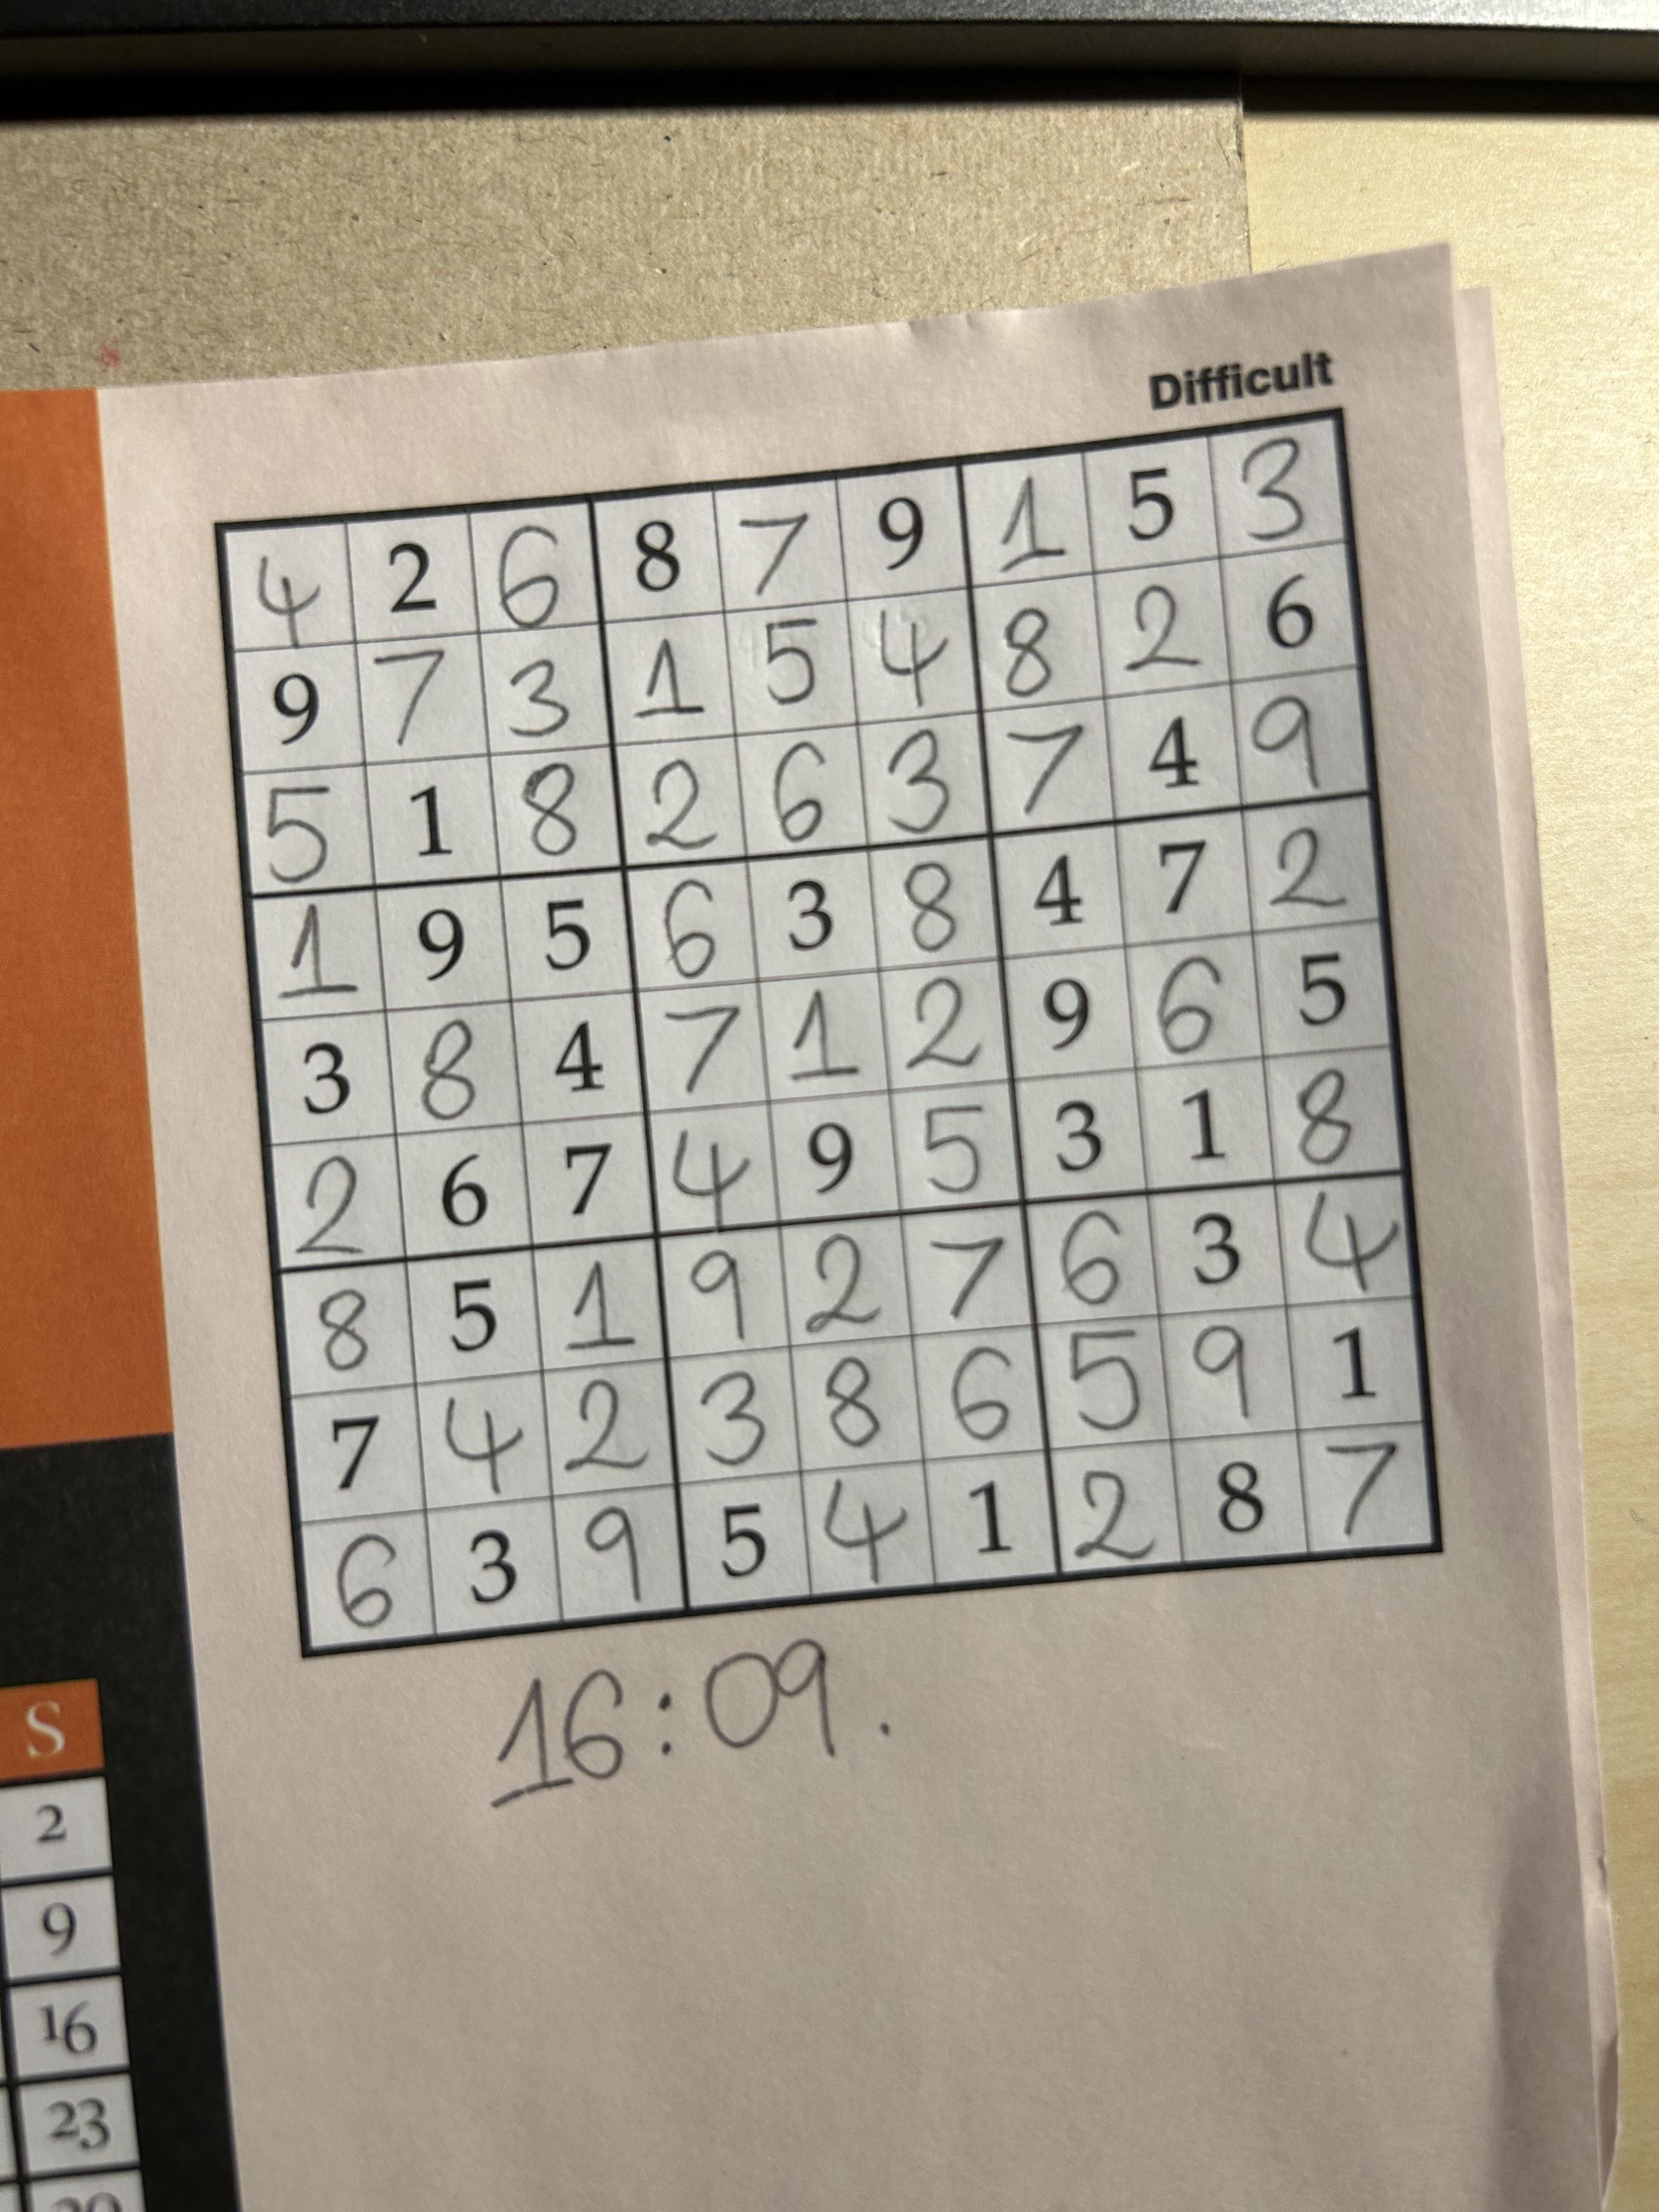 Difficult
4 2 6 8 7 9 1 5 3
9 7 3 1 5 4 8 2 6
5 1 8 2 6 3 7 4 9
1 9 5 6 3 8 4 7 2
3 8 4 7 1 2 9 6 5
2 6 7 4 9 5 3 1 8
8 5 1 9 2 7 6 3 4
7 4 2 3 8 6 5 9 1
6 3 9 5 4 1 2 8 7
16:09.
S
2
9
16
23